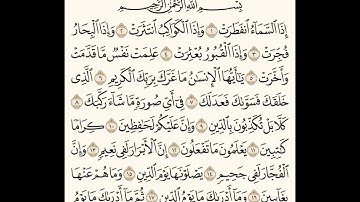 بِسْمِ ٱللَّهِ ٱلرَّحْمَٰنِ ٱلرَّحِيمِ
إِذَا ٱلسَّمَآءُ ٱنفَطَرَتْ ١ وَإِذَا ٱلْكَوَاكِبُ ٱنتَثَرَتْ ٢ وَإِذَا ٱلْبِحَارُ
فُجِّرَتْ ٣ وَإِذَا ٱلْقُبُورُ بُعْثِرَتْ ٤ عَلِمَتْ نَفْسٌ مَّا قَدَّمَتْ
وَأَخَّرَتْ ٥ يَٰٓأَيُّهَا ٱلْإِنسَٰنُ مَا غَرَّكَ بِرَبِّكَ ٱلْكَرِيمِ ٦ ٱلَّذِى
خَلَقَكَ فَسَوَّىٰكَ فَعَدَلَكَ ٧ فِىٓ أَىِّ صُورَةٍ مَّا شَآءَ رَكَّبَكَ ٨
كَلَّا بَلْ تُكَذِّبُونَ بِٱلدِّينِ ٩ وَإِنَّ عَلَيْكُمْ لَحَٰفِظِينَ ١٠ كِرَامًا
كَٰتِبِينَ ١١ يَعْلَمُونَ مَا تَفْعَلُونَ ١٢ إِنَّ ٱلْأَبْرَارَ لَفِى نَعِيمٍ ١٣ وَإِنَّ
ٱلْفُجَّارَ لَفِى جَحِيمٍ ١٤ يَصْلَوْنَهَا يَوْمَ ٱلدِّينِ ١٥ وَمَا هُمْ عَنْهَا
بِغَآئِبِينَ ١٦ وَمَآ أَدْرَىٰكَ مَا يَوْمُ ٱلدِّينِ ١٧ ثُمَّ مَآ أَدْرَىٰكَ مَا يَوْمُ